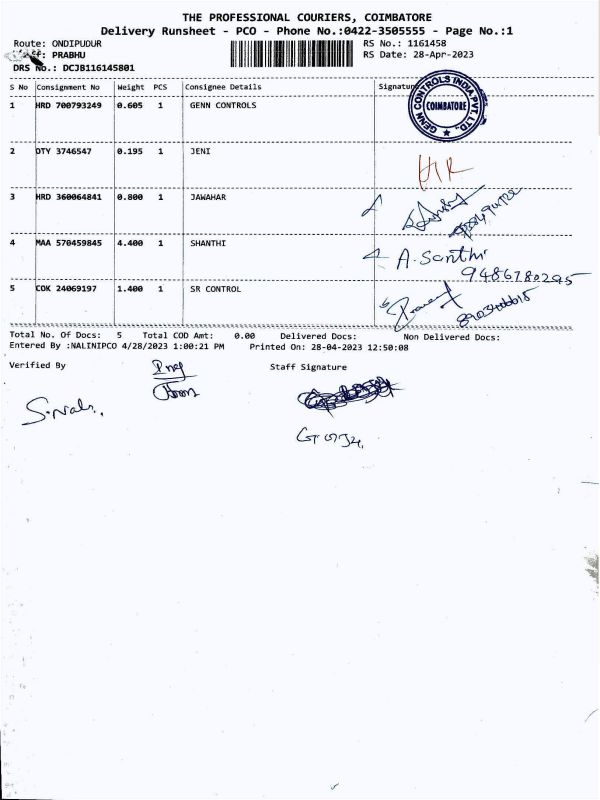 THE PROFESSIONAL COURIERS, COIMBATORE
Delivery Runsheet - PCO - Phone No.:0422-3505555 - Page No.:1
Route: ONDIPUDUR RS No.: 1161458
: PRABHU RS Date: 28-Apr-2023
DRS No.: DCJB116145801
S No Consignment No Weight PCS Consignee Details Signature
1 HRD 700793249 0.605 1 GENN CONTROLS
GENN CONTROLS INDIA PVT. LTD. COIMBATORE
2 DTY 3746547 0.195 1 JENI
HR
3 HRD 360064841 0.800 1 JAWAHAR
4 MAA 570459845 4.400 1 SHANTHI A. Santhi
9486780295
5 COK 24069197 1.400 1 SR CONTROL
Total No. Of Docs: 5 Total COD Amt: 0.00 Delivered Docs: Non Delivered Docs:
Entered By :NALINIPCO 4/28/2023 1:00:21 PM Printed On: 28-04-2023 12:50:08
Verified By Staff Signature